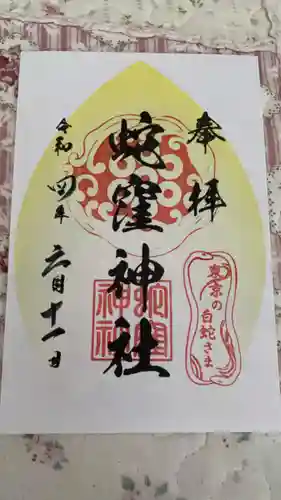 奉拝
蛇窪神社
蛇窪神社
東京の
白蛇さま
令和四年六月十一日